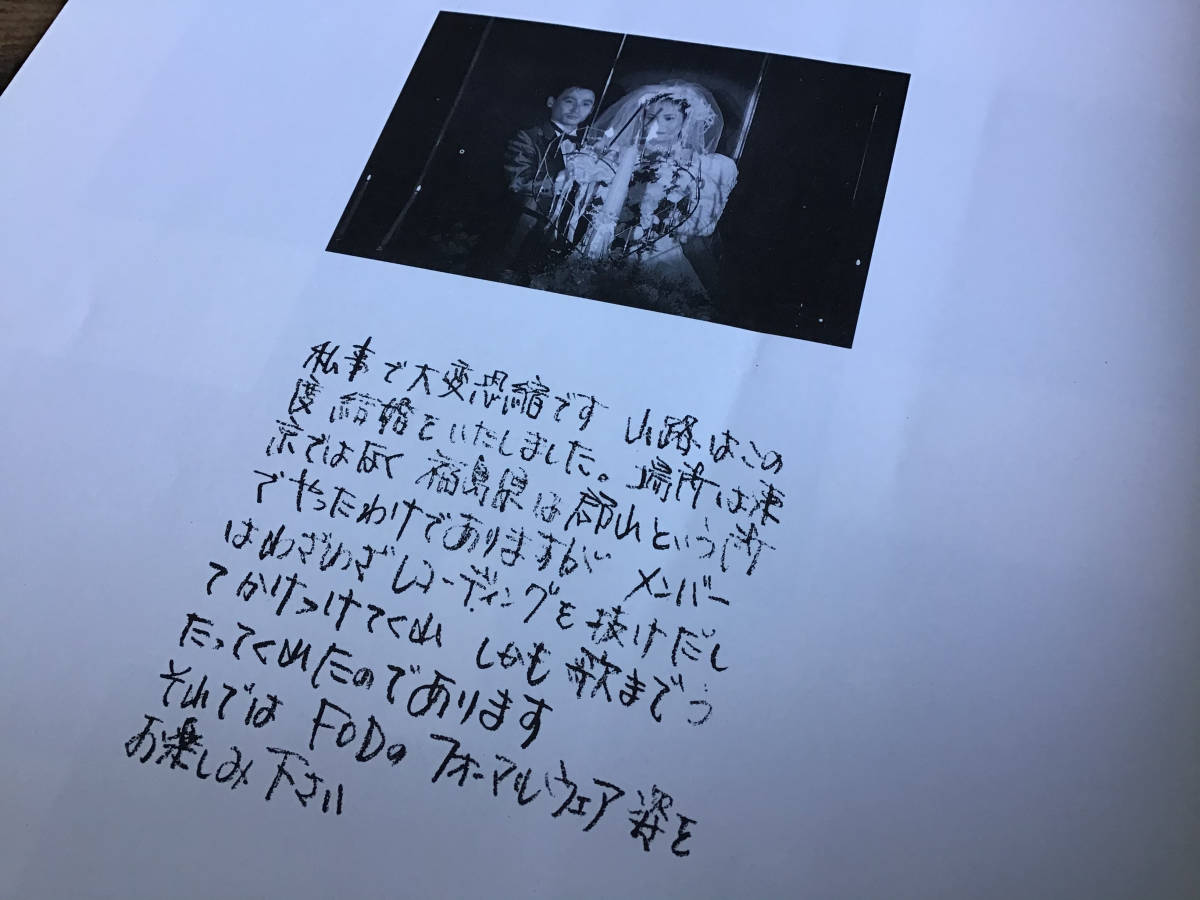 私事で大変恐縮です 山路はこの
度 結婚をいたしました。場所は東
京では灰く 福島県は郡山という所
でやったわけでありますが メンバー
はわざわざレコーディングを抜けだし
てかけつけてくれ しかも歌までう
たってくれたのであります
それでは FODの フォーマルウェア姿を
お楽しみ下さい